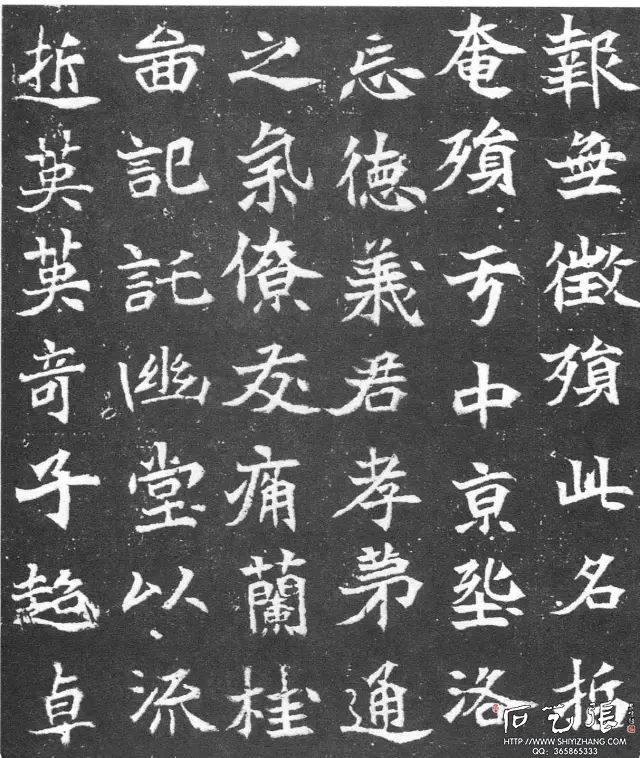 報無徵殞此名哲
奄殞亏中亰洛
忘德義君孝弟通
之氣僚友痛蘭桂
啚記託幽堂以流
英英奇子超卓
石艺張
HTTP://WWW.SHIYIZHANG.COM
QQ: 365865333